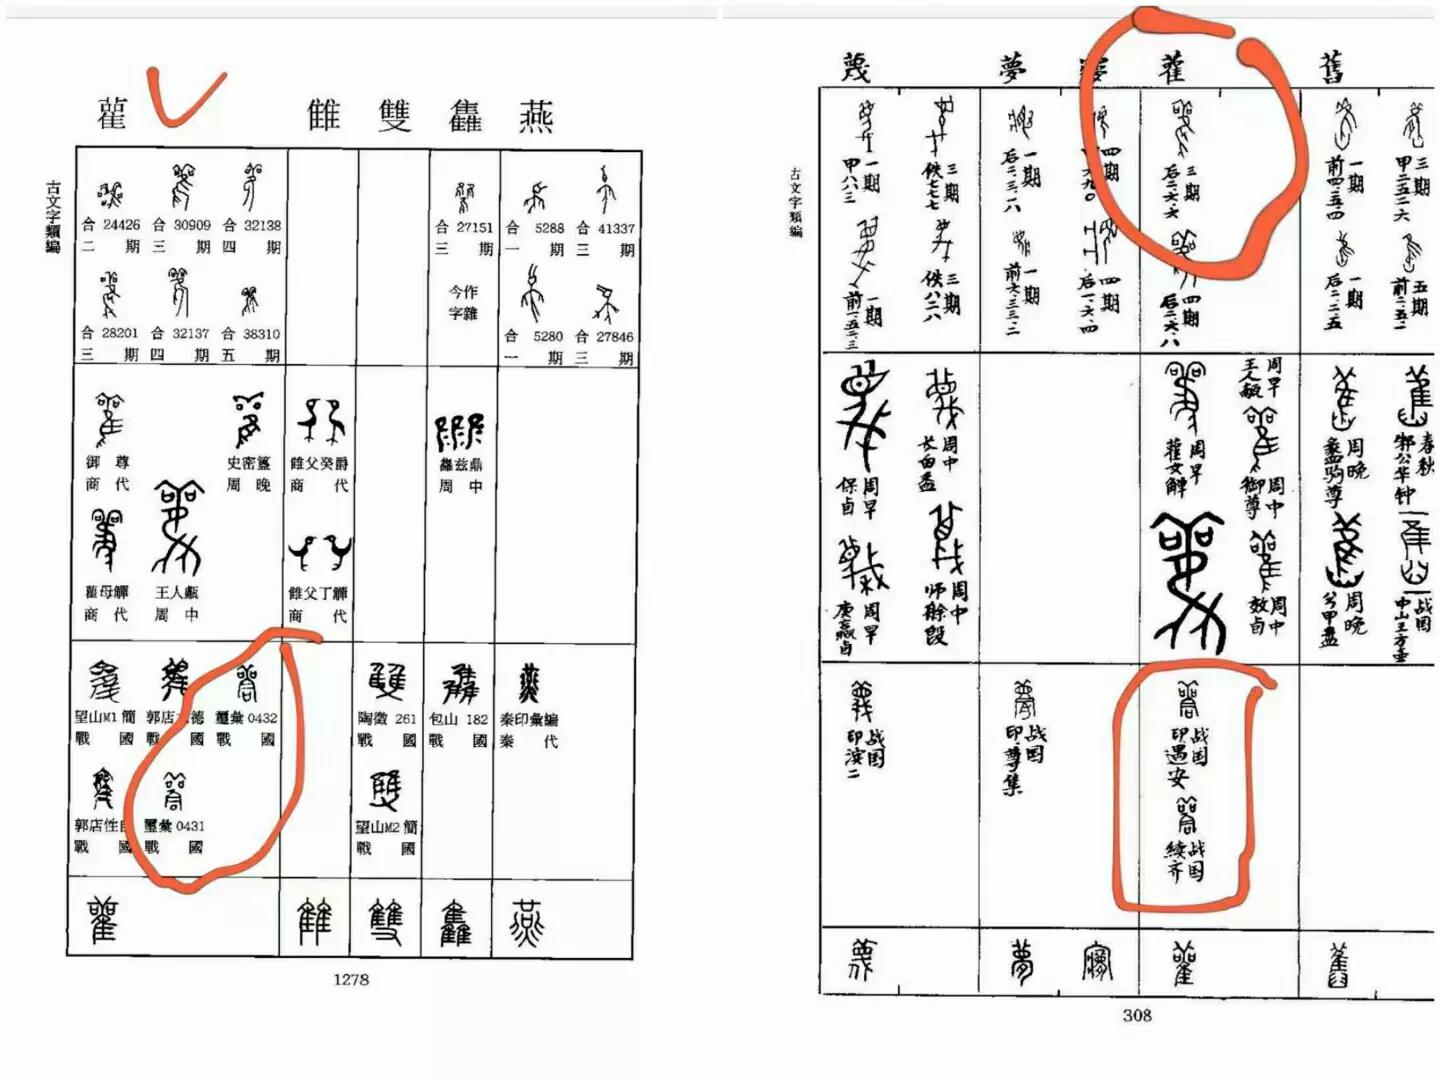 雚 雔 雙 雥 燕
古文字類編
合 24426 合 30909 合 32138 合 27151 合 5288 合 41337
二 期 三 期 四 期 三 期 一 期 三 期
今作
字雜
合 28201 合 32137 合 38310 合 5280 合 27846
三 期 四 期 五 期 一 期 三 期
御 尊 史密簋 雔父癸爵 雥茲鼎
商 代 周 晚 商 代 周 中
雚母觶 王人甗 雔父丁觶
商 代 周 中 商 代
望山M1 簡 郭店 德 璽彙 0432 陶徵 261 包山 182 秦印彙編
戰 國 戰 國 戰 國 戰 國 戰 國 秦 代
郭店性自 璽彙 0431 望山M2 簡
戰 國 戰 國 戰 國
1278
蔑 夢 雚 舊
古文字類編
一期 甲八八三
三期 佚七七七
一期 后二.三.一八
四期
三期 后二.六.六
一期 前四.一五.四
三期 甲二五二六
一期 前一.五二.三
三期 佚八二八
一期 前六.三三.二
四期 后一.六.四
四期 后二.六.八
一期 后二.二.五
五期 前二.五.二
周早 保卣
周中 长甶盉
周早 雚女觶
周早 王人甗
周中 御尊
周晚 盠驹尊
春秋 邾公华钟
周早 庚嬴卣
周中 师艅毁
周中 效卣
周晚 兮甲盘
战国 中山王方壶
战国 印滨二
战国 印.尊集
战国 印遇安
战国 续齐
308